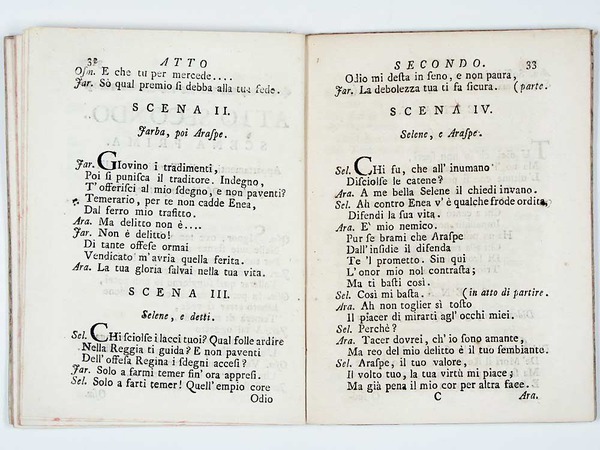 32 ATTO
Osm. E che tu per mercede....
Jar. Sò qual premio si debba alla tua fede.
SCENA II.
Jarba, poi Araspe.
Jar. GIovino i tradimenti,
Poi si punisca il traditore. Indegno,
T' offerisci al mio sdegno, e non paventi?
Temerario, per te non cadde Enea,
Dal ferro mio trafitto.
Ara. Ma delitto non è....
Jar. Non è delitto!
Di tante offese ormai
Vendicato m'avria quella ferita.
Ara. La tua gloria salvai nella tua vita.
SCENA III.
Selene, e detti.
Sel. CHi sciolse i lacci tuoi? Qual folle ardire
Nella Reggia ti guida? E non paventi
Dell' offesa Regina i sdegni accesi?
Jar. Solo a farmi temer fin' ora appresi.
Sel. Solo a farti temer! Quell' empio core
Odio
SECONDO. 33
Odio mi desta in seno, e non paura,
Jar. La debolezza tua ti fa sicura. (parte.
SCENA IV.
Selene, e Araspe.
Sel. CHi fu, che all' inumano
Disciolse le catene?
Ara. A me bella Selene il chiedi invano.
Sel. Ah contro Enea v' è qualche frode ordita,
Difendi la sua vita.
Ara. E' mio nemico.
Pur se brami che Araspe
Dall' insidie il difenda
Te 'l prometto. Sin qui
L' onor mio nol contrasta;
Ma ti basti così.
Sel. Così mi basta. (in atto di partire.
Ara. Ah non toglier sì tosto
Il piacer di mirarti agl' occhi miei.
Sel. Perchè?
Ara. Tacer dovrei, ch' io sono amante,
Ma reo del mio delitto è il tuo sembiante.
Sel. Araspe, il tuo valore,
Il volto tuo, la tua virtù mi piace;
Ma già pena il mio cor per altra face.
C Ara.